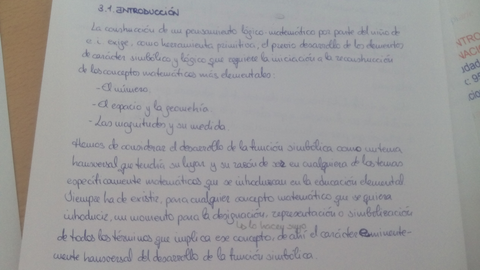 3.1. INTRODUCCIÓN
La construcción de un pensamiento lógico-matemático por parte del niño de
e.i. exige, como herramienta primitiva, el previo desarrollo de los elementos
de carácter simbólico y lógico que requiere la iniciación a la reconstrucción
de los conceptos matemáticos más elementales:
- El número.
- El espacio y la geometría.
- Las magnitudes y su medida.
Hemos de considerar el desarrollo de la función simbólica como un tema
transversal que tendrá su lugar y su razón de ser en cualquiera de los temas
específicamente matemáticos que se introduzcan en la educación elemental
Siempre ha de existir, para cualquier concepto matemático que se quiera
introducir, un momento para la designación, representación o simbolización
no lo hacen sino
de todos los términos que implica ese concepto, de ahí el carácter eminente-
mente transversal del desarrollo de la función simbólica.
NTRO
NACI